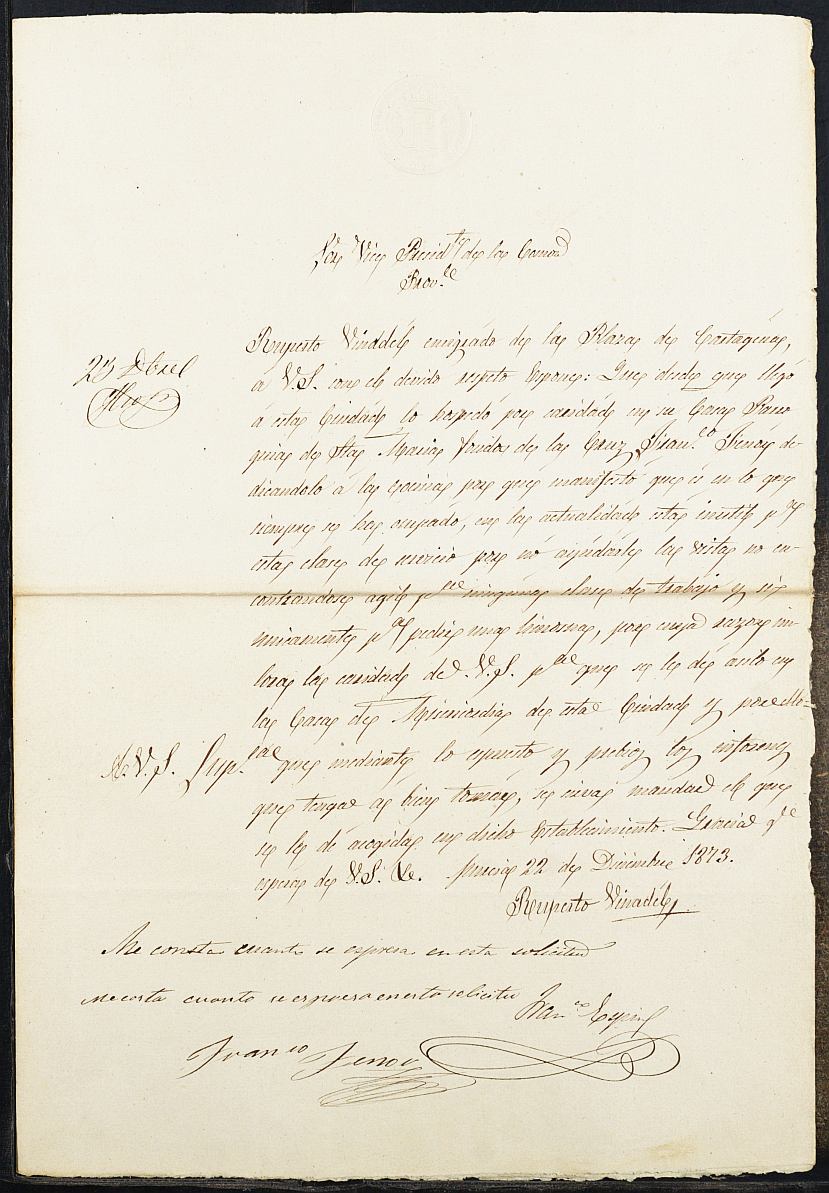 Sor. Vice Presidte. de la Comon.
Provl.
23 Dbre
Ruperto Vinadel, emigrado de la Plaza de Cartagena,
á V.S. con el devido respeto Espone: Que desde que llegó
á esta Ciudad lo hospedó por caridad en su Casa Parro
quia de Sta. Maria fonda de la Cruz Fran.co Jenoy de-
dicandolo á la cocina por que manifestó que és en lo que
siempre se ha ocupado, en la actualidad esta inutil pa.
esta clase de servicio por nó ayudarle la vista no en-
contrandose agil pa. ninguna clase de trabajo y si
unicamente pa. pedir una limosna, por cuya razon im
plora la caridad de V.S. pa. que se le dé asilo en
la Casa de Misericordia de esta Ciudad y por ello
A. V.S. Supca. que mediante lo espuesto y previos los informes
que tenga á bien tomar, se sirva mandar el que
se le dé acogida en dicho Establecimiento. Gracia qe.
espera de V.S. &c. Murcia 22 de Diciembre 1873.
Ruperto Vinadel
Me consta cuanto se espresa en esta solicitud
Me costa cuanto se espresa en esta solicitu
Fran.co Espin
Franco Jenoy